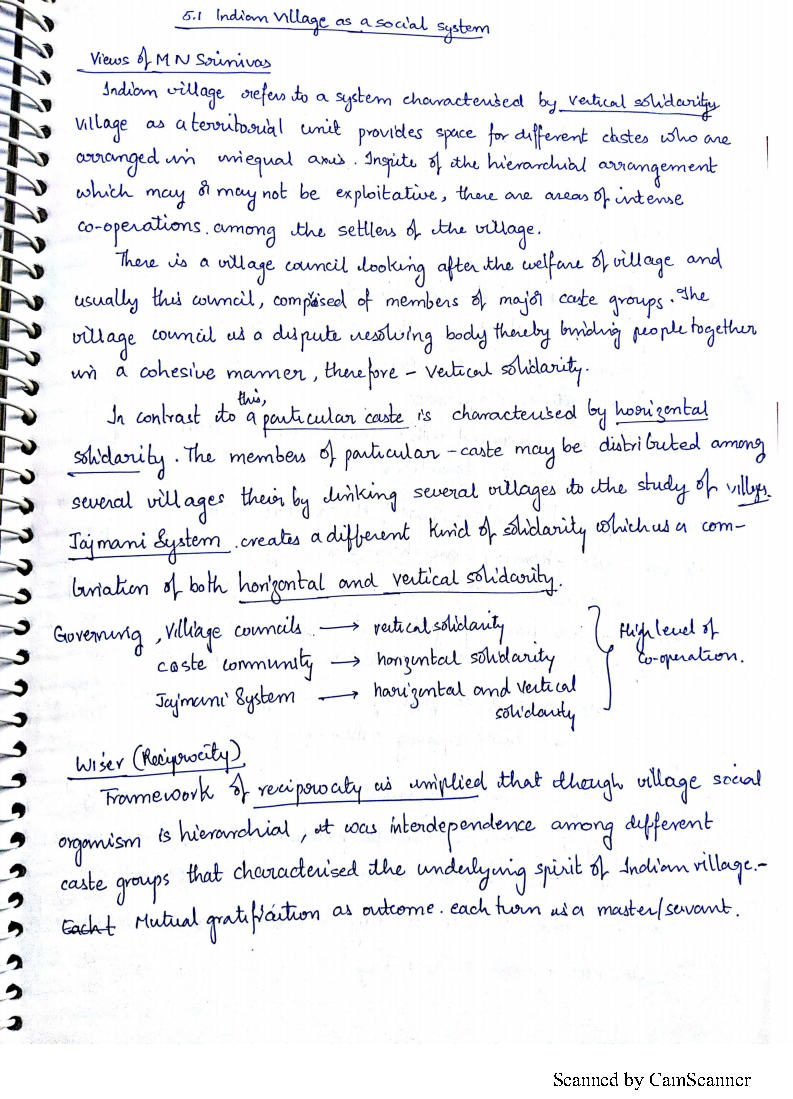 5.1 Indian Village as a social system
Views of M N Srinivas
Indian village refers to a system characterised by vertical solidarity
village as a territorial unit provides space for different castes who are
arranged in unequal axis. Inspite of the hierarchial arrangement
which may or may not be exploitative, there are areas of intense
co-operations. among the settlers of the village.
There is a village council looking after the welfare of village and
usually this council, composed of members of major caste groups. The
village council is a dispute resolving body thereby binding people together
in a cohesive manner, therefore - vertical solidarity.
this,
In contrast to a particular caste is characterised by horizental
solidarity. The members of particular - caste may be distributed among
several villages their by linking several villages to the study of village.
Jajmani System creates a different kind of solidarity which is a com-
bination of both horizontal and vertical solidarity.
Governing, Villiage councils → vertical solidarity
caste community → horizental solidarity
Jajmani System → harizental and vertical
solidarity
High level of
co-operation.
Wiser (Reciprocity)
Framework of reciprocity is implied that though village social
organism is hierarchial, it was interdependence among different
caste groups that characterised the underlying spirit of Indian village.-
Each t Mutual gratification as outcome. each turn is a master/servant.
Scanned by CamScanner